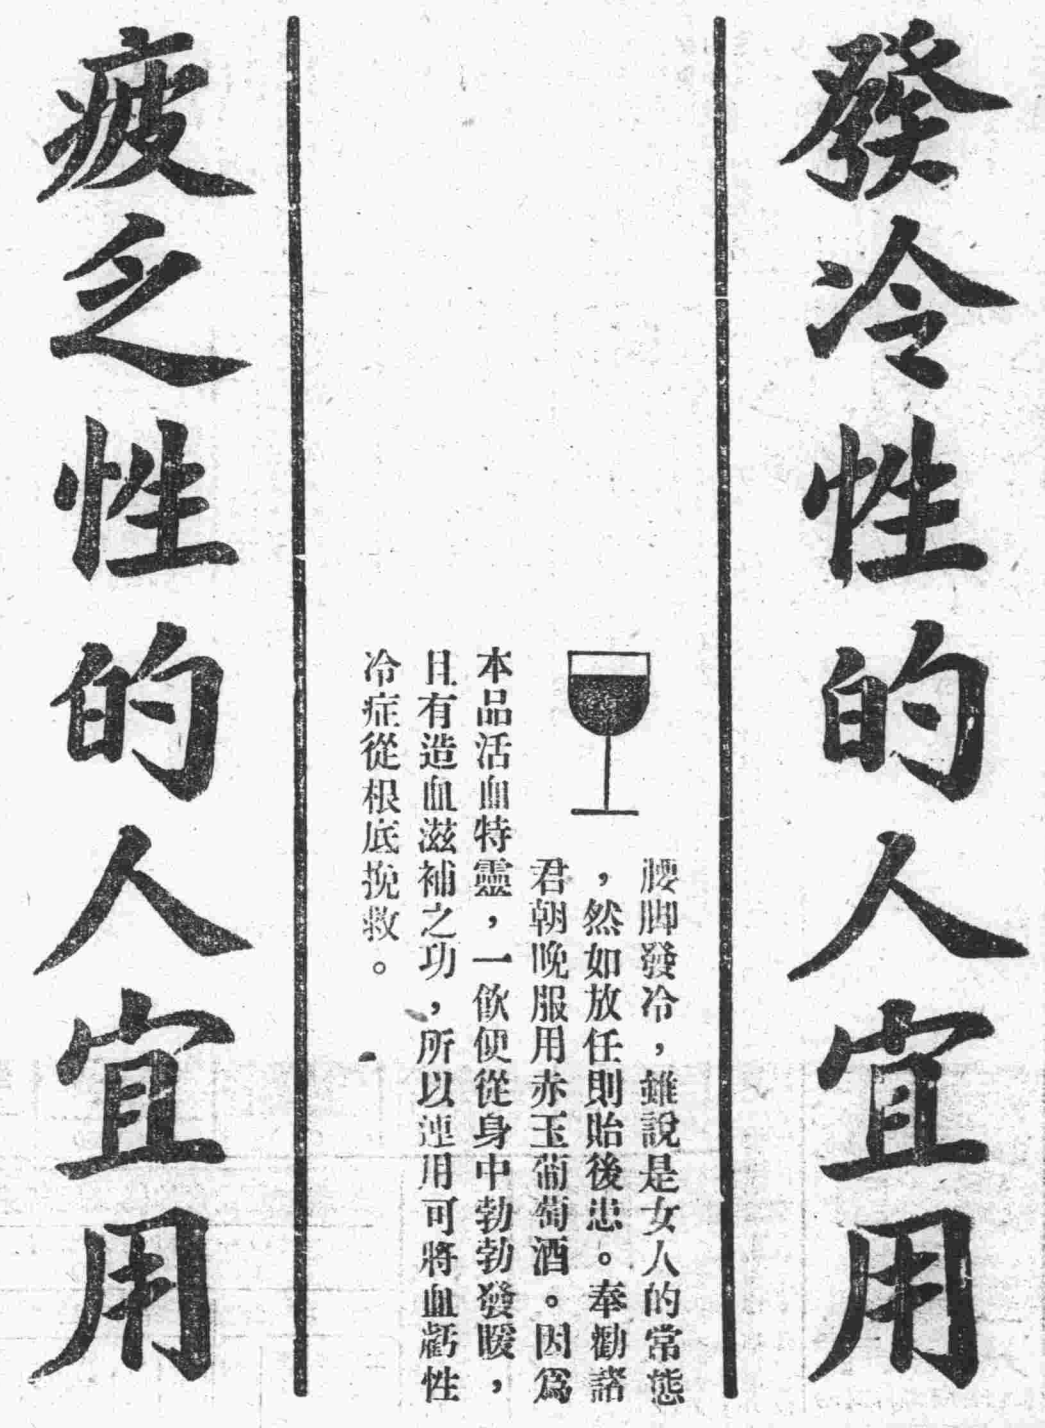 發冷性的人宜用
腰脚發冷，雖說是女人的常態
，然如放任則貽後患。奉勸諸
君朝晚服用赤玉葡萄酒。因爲
本品活血特靈，一飲便從身中勃勃發暖，
且有造血滋補之功，所以連用可將血虧性
冷症從根底挽救。
疲乏性的人宜用